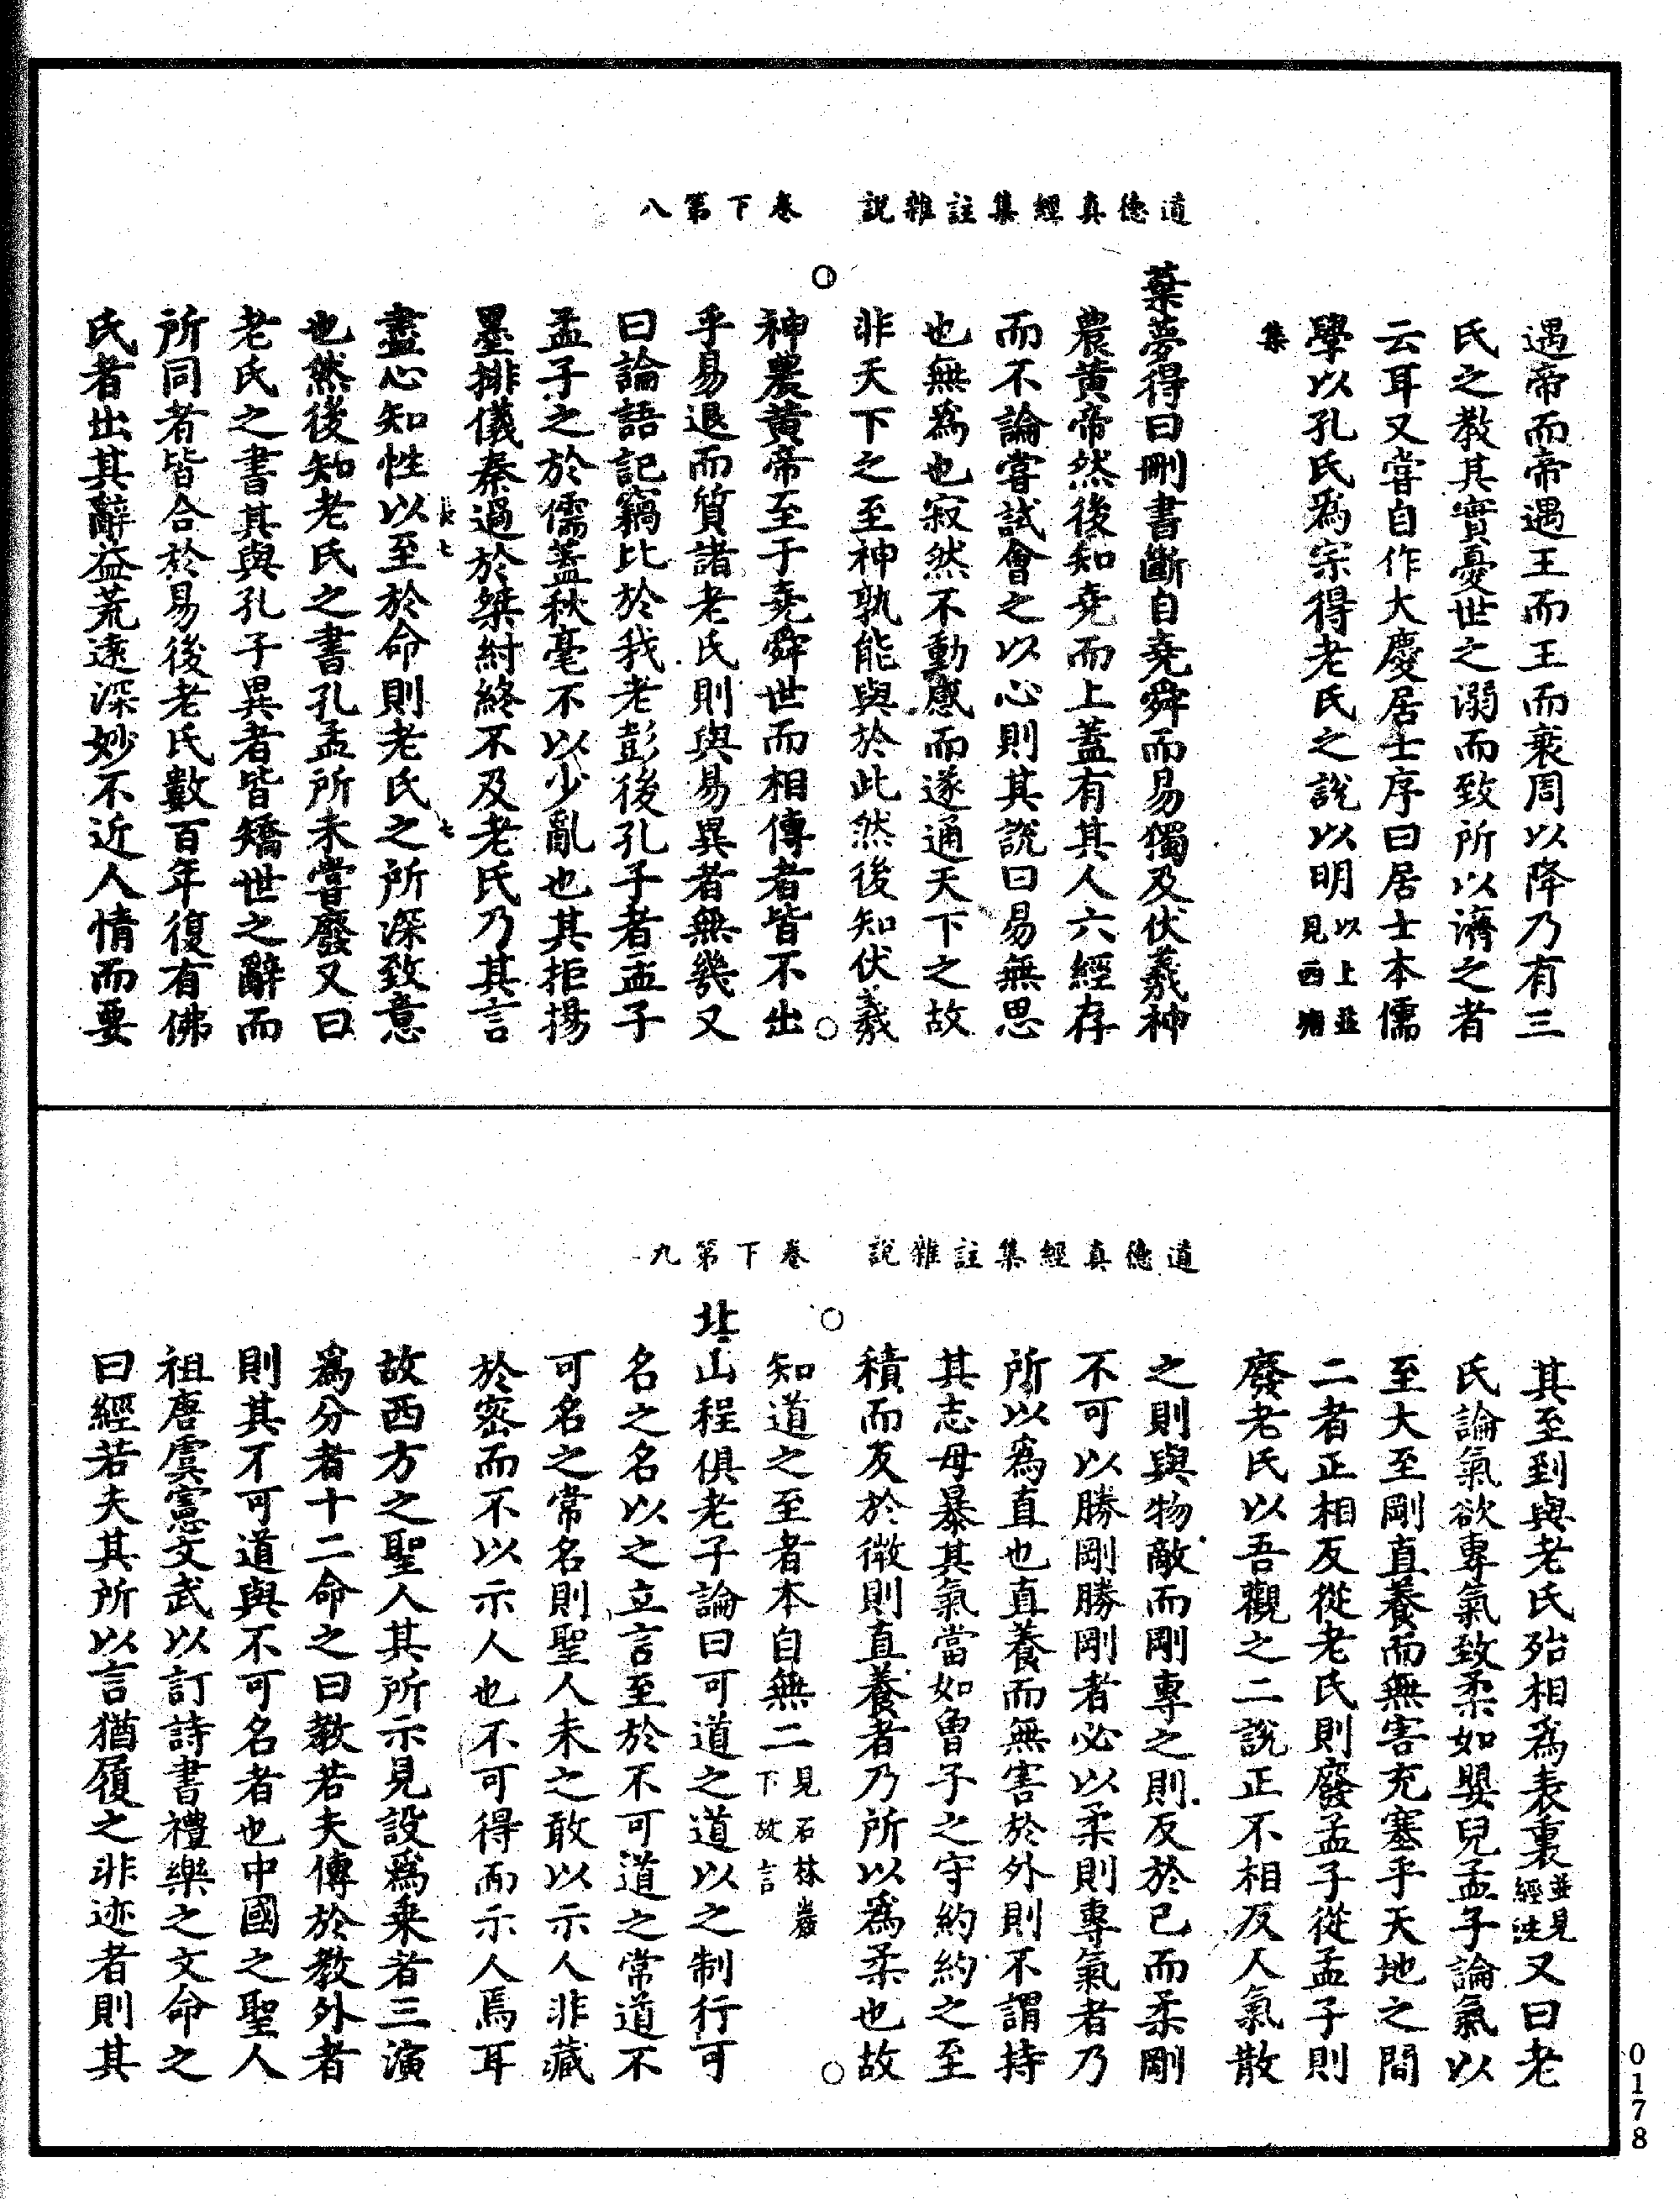 道德真經集註雜說　卷下第八
遇帝而帝遇王而王而衰周以降乃有三
氏之教其實憂世之溺而致所以濟之者
云耳又嘗自作大慶居士序曰居士本儒
學以孔氏爲宗得老氏之說以明以上並見西塘
集
葉夢得曰刪書斷自堯舜而易獨及伏羲神
農黃帝然後知堯而上蓋有其人六經存
而不論嘗試會之以心則其說曰易無思
也無爲也寂然不動感而遂通天下之故
非天下之至神孰能與於此然後知伏羲
神農黃帝至于堯舜世而相傳者皆不出
乎易退而質諸老氏則與易異者無幾又
曰論語記竊比於我老彭後孔子者孟子
孟子之於儒蓋秋毫不以少亂也其拒揚
墨排儀秦過於桀紂終不及老氏乃其言
盡心知性以至於命則老氏之所深致意
也然後知老氏之書孔孟所未嘗廢又曰
老氏之書其與孔子異者皆矯世之辭而
所同者皆合於易後老氏數百年復有佛
氏者出其辭益荒遠深妙不近人情而要
道德真經集註雜說　卷下第九
其至到與老氏殆相爲表裏並見經述又曰老
氏論氣欲專氣致柔如嬰兒孟子論氣以
至大至剛直養而無害充塞乎天地之間
二者正相反從老氏則廢孟子從孟子則
廢老氏以吾觀之二說正不相反人氣散
之則與物敵而剛專之則反於己而柔剛
不可以勝剛勝剛者必以柔則專氣者乃
所以爲直也直養而無害於外則不謂持
其志毋暴其氣當如曾子之守約約之至
積而反於微則直養者乃所以爲柔也故
知道之至者本自無二見石林巖下放言
北山程俱老子論曰可道之道以之制行可
名之名以之立言至於不可道之常道不
可名之常名則聖人未之敢以示人非藏
於密而不以示人也不可得而示人焉耳
故西方之聖人其所示見設爲乘者三演
爲分者十二命之曰教若夫傳於教外者
則其不可道與不可名者也中國之聖人
祖唐虞憲文武以訂詩書禮樂之文命之
曰經若夫其所以言猶履之非迹者則其
0178